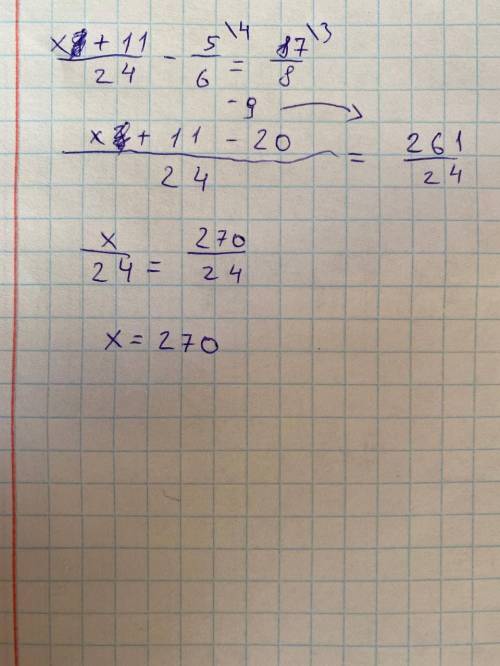 (x + 11)/24 - 5/6 \4 = 87/8 \3
-9
(x + 11 - 20)/24 = 261/24
x/24 = 270/24
x = 270